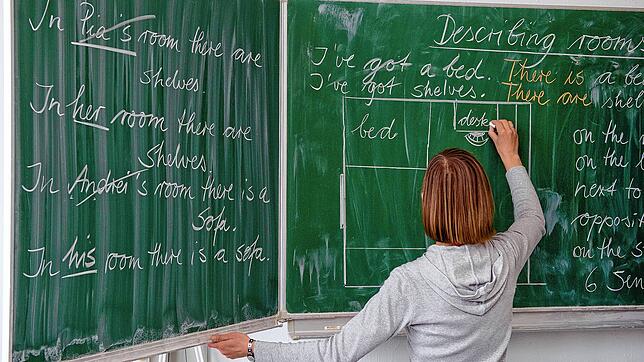 In Pia's room there are
shelves.
In her room there are
shelves.
In Andrei's room there is a
sofa.
In his room there is a sofa.
Describing rooms
I've got a bed. There is a be
I've got shelves. There are shel
bed
desk
on the
on the
next to
opposit
on the
6 Sen